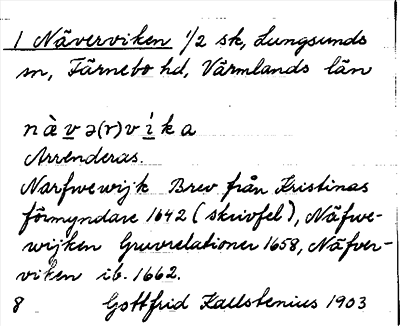 1 Näverviken 1/2 sk, Lungsunds
sn, Färnebo hd, Värmlands län
nὰvə(r)víka
Arrenderas.
Narfwewijk Brev från Kristinas
förmyndare 1642 (skrivfel), Näfwe-
wijken Gruvrelationer 1658, Näfver-
viken ib. 1662.
8 Gottfrid Kallstenius 1903